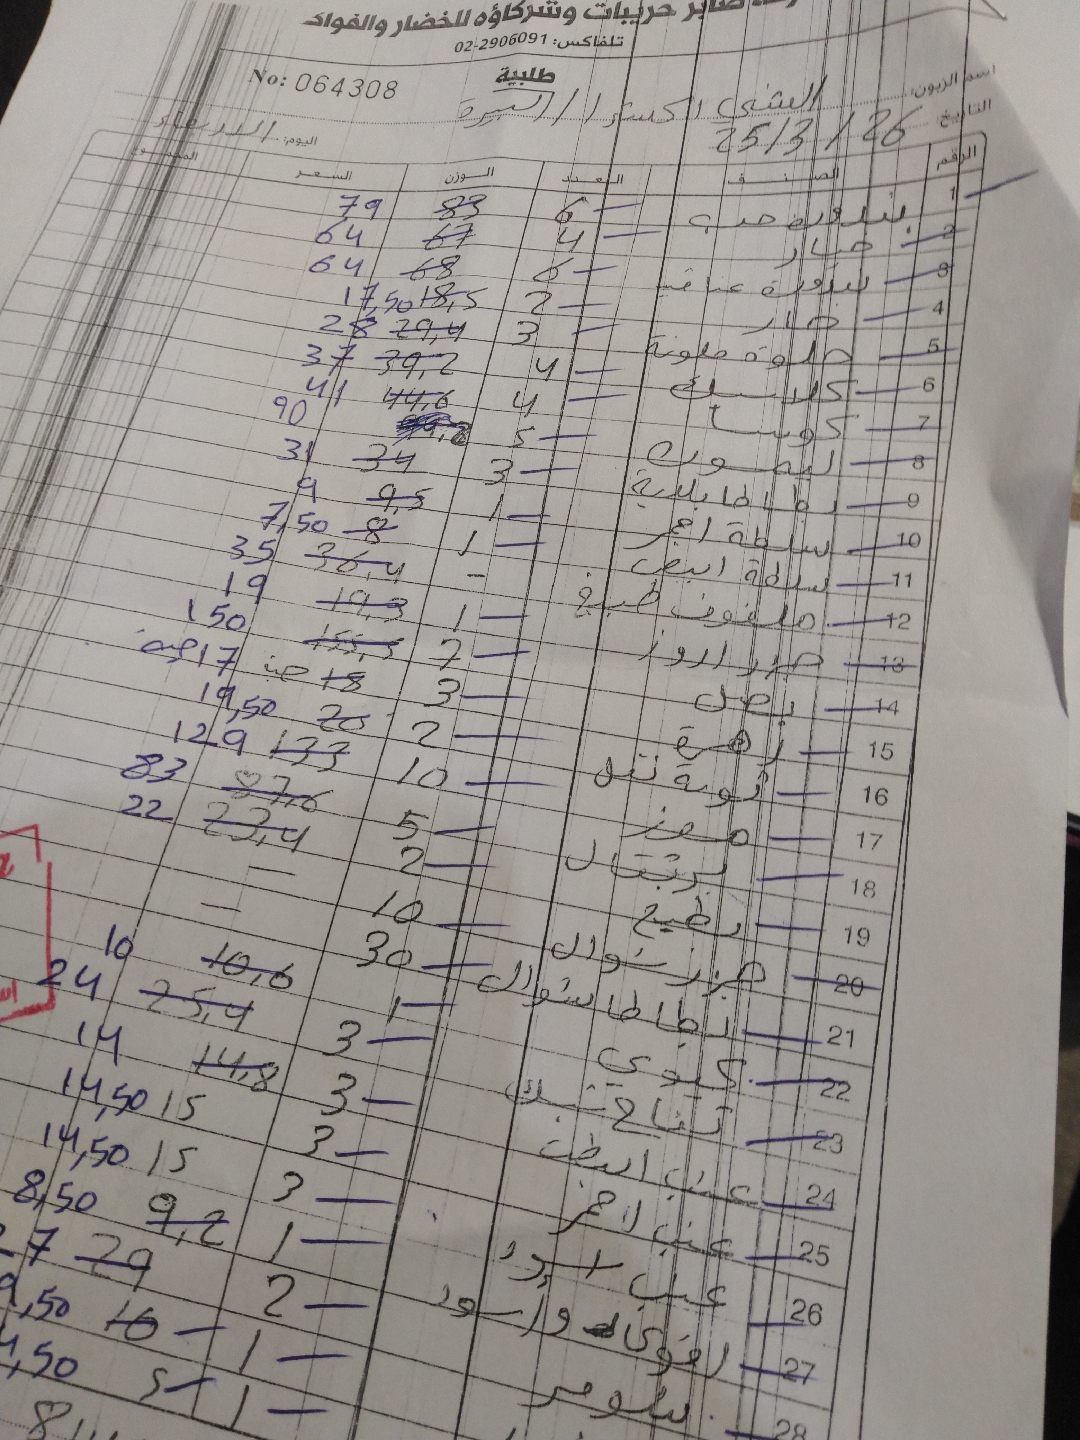 صابر حريبات وشركاؤه للخضار والفواك
تلفاكس: 02-2906091
طلبية
No: 064308
اسم الزبون:
التاريخ: 25/3/26
اليوم: الاربعاء
الرقم الصنف العدد الوزن السعر المجموع
1 بندورة حب 6 83 79
2 خيار 4 67 64
3 بندورة عناقيد 6 68 64
4 خيار 2 18,5 17,50
5 حلوة ملونة 3 29,4 28
6 كلاسيك 4 39,2 37
7 كوسا 4 44,6 41
8 ليمون 5 90
9 بطاطا بلدية 3 34 31
10 سلطة احمر 1 9,5 9
11 سلطة ابيض 1 8 7,50
12 ملفوف طبيخ - 36,4 35
13 1 19,3 19
14 بصل 2 155,5 150
15 زهرة 3 18 حبة 17 حبة
16 2 20 19,50
17 موز 10 133 129
18 برتقال 5 87,6 83
19 بطيخ 2 23,4 22
20 جزر شوال 10 —
21 بطاطا شوال 30 —
22 كيوي 1 10,6 10
23 تفاح 3 25,4 24
24 عنب ابيض 3 14,8 14
25 عنب احمر 3 15 14,50
26 عنب اسود 3 15 14,50
27 1 9,2 8,50
28 2 29
1 10 9,50
1 5 4,50